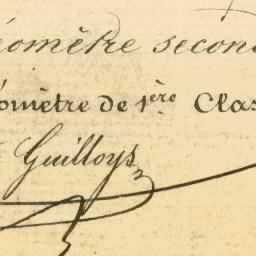 éomètre second
éomètre de 1ère Clas
Guilloys